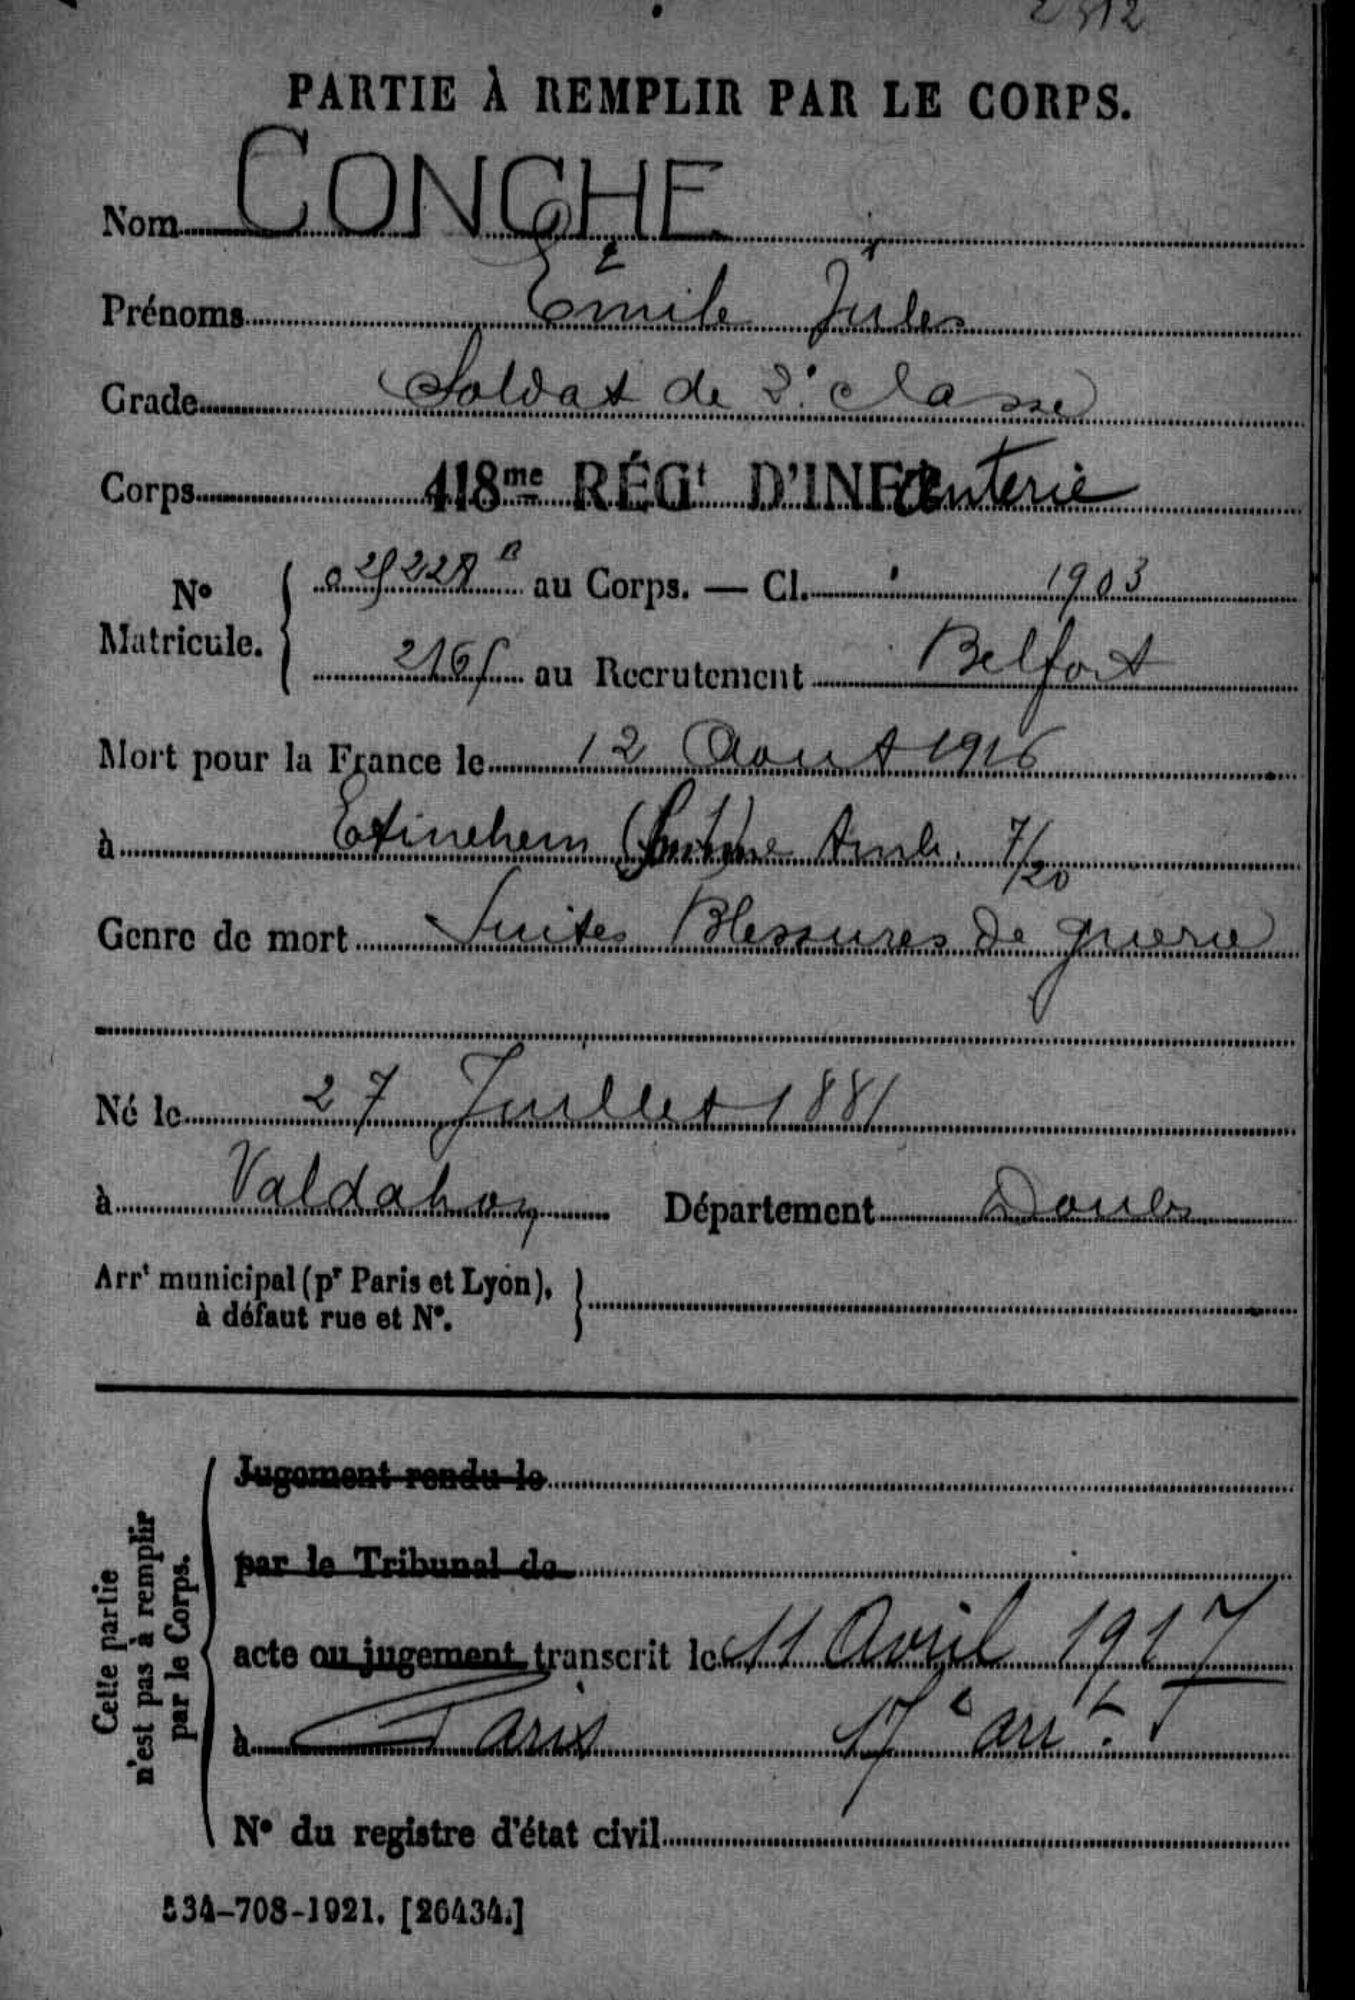 2312
PARTIE À REMPLIR PAR LE CORPS.
Nom CONCHE
Prénoms Émile Jules
Grade Soldat de 2e classe
Corps 418me RÉGt D'INFanterie
No Matricule. au Corps. — Cl. 1903
au Recrutement Belfort
Mort pour la France le 12 Aout 1916
à Etinehem (Somme Amb. 7/20
Genre de mort Suites Blessures de guerre
Né le 27 Juillet 1881
à Valdahon Département Doubs
Arrt municipal (pr Paris et Lyon),
à défaut rue et No.
Cette partie
n'est pas à remplir
par le Corps.
Jugement rendu le
par le Tribunal de
acte ou jugement transcrit le 11 Avril 1917
à Paris 17e arrt.
No du registre d'état civil
534-708-1921. [26434.]